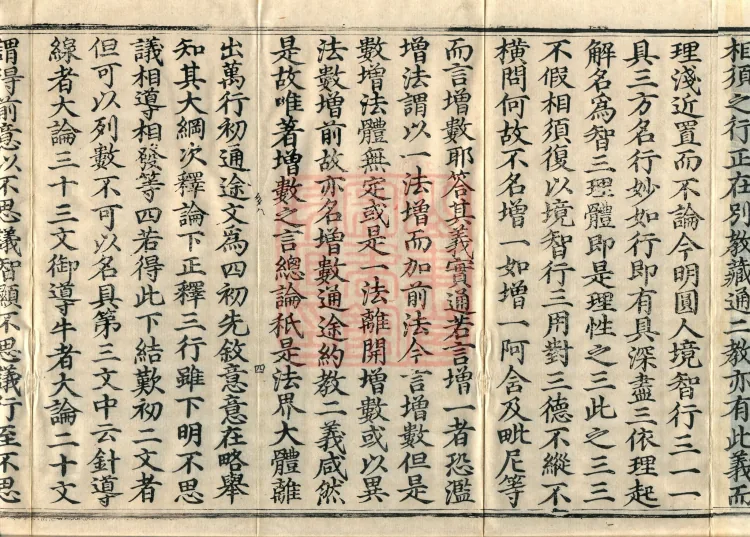 相須之行正在別教藏通二教亦有此義而
理淺近置而不論今明圓人境智行三一一
具三方名行妙如行即有具深盡三依理起
解名為智三理體即是理性之三此之三三
不假相須復以境智行三用對三德不縱不
橫問何故不名增一如增一阿含及毗尼等
而言增數耶答其義實通若言增一者恐濫
增法謂以一法增而加前法今言增數但是
數增法體無定或是一法離開增數或以異
法數增前故亦名增數通途約教二義咸然
是故唯著增數之言總論秖是法界大體離
四
出萬行初通途文為四初先敘意意在略舉
知其大綱次釋論下正釋三行雖下明不思
議相導相發等四若得此下結歎初二文者
但可以列數不可以名具第三文中云針導
線者大論三十三文御導牛者大論二十文
謂得前意以不思議智顯不思議行至不思